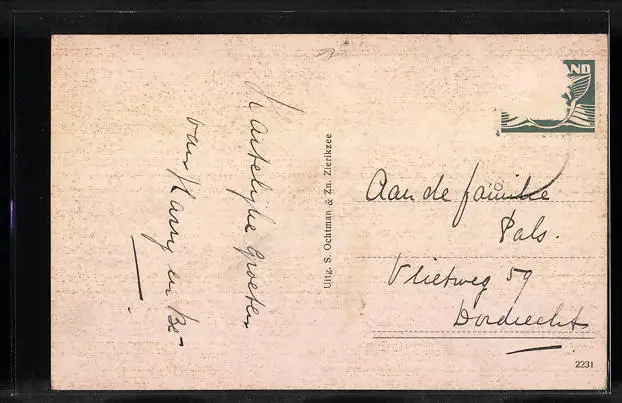 Hartelijke Groeten
van Harry en Be-
Uitg. S. Ochtman & Zn. Zierikzee
AND
Aan de familie
Pals.
Vlietweg 59
Dordrecht
2231